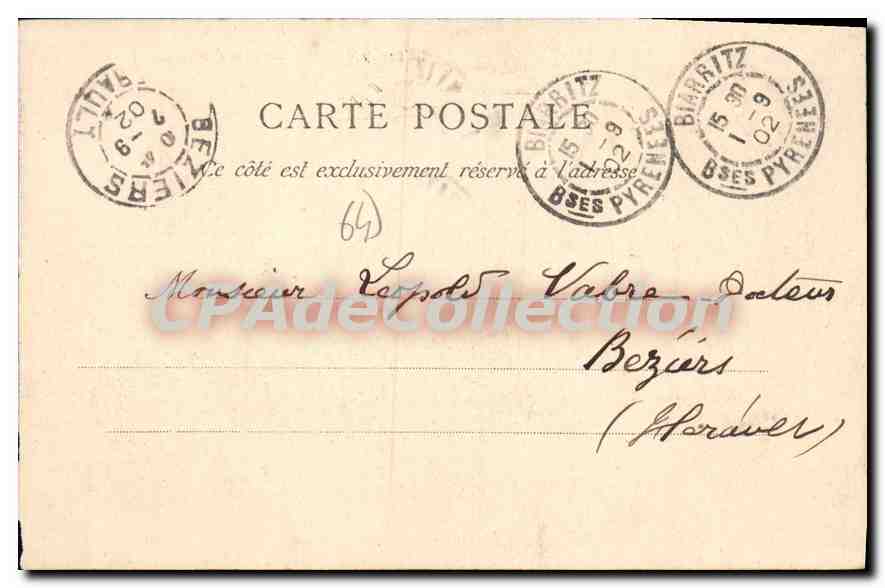 CARTE POSTALE
Ce côté est exclusivement réservé à l'adresse
BIARRITZ
15 30
1 - 9
02
BSES PYRENEES
BIARRITZ
15 30
1 - 9
02
BSES PYRENEES
BEZIERS
2 - 9
02
RAULT
64)
Monsieur Leopold Vabre Docteur
Beziérs
(Herault)
CPAdeCollection